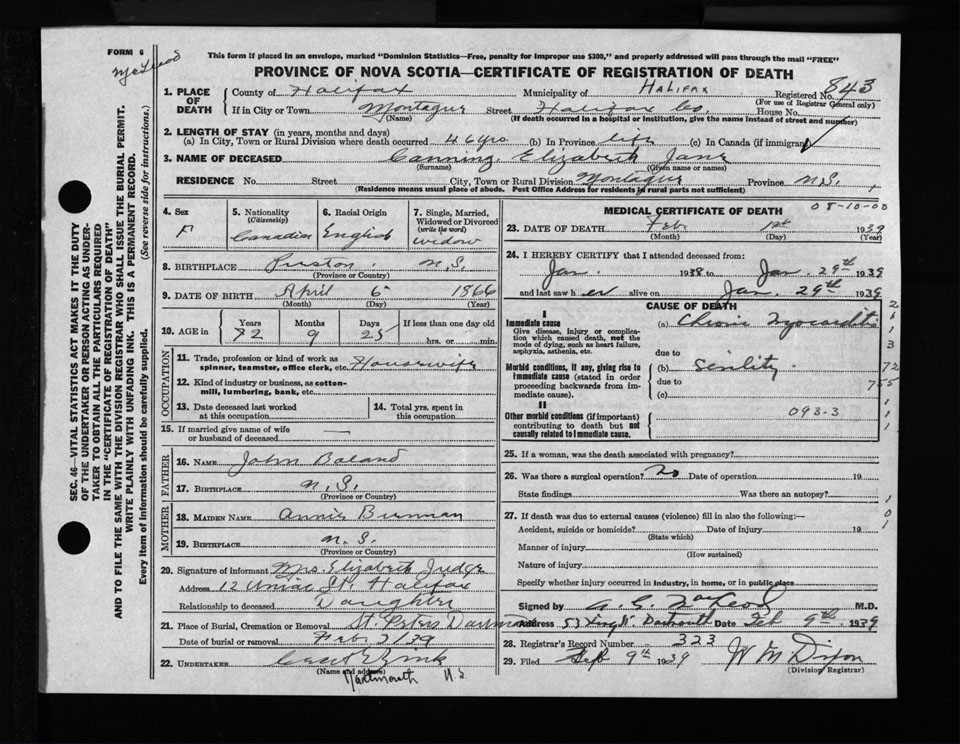 FORM 6
McLeod
This form if placed in an envelope, marked "Dominion Statistics—Free, penalty for improper use $300," and properly addressed will pass through the mail "FREE"
PROVINCE OF NOVA SCOTIA—CERTIFICATE OF REGISTRATION OF DEATH
1. PLACE OF DEATH County of Halifax Municipality of HALIFAX Registered No. 843
(For use of Registrar General only)
If in City or Town Montague Street Halifax Co. House No.
(Name) (If death occurred in a hospital or institution, give the name instead of street and number)
2. LENGTH OF STAY (in years, months and days)
(a) In City, Town or Rural Division where death occurred 46 yrs. (b) In Province life (c) In Canada (if immigrant)
3. NAME OF DECEASED Canning Elizabeth Jane
(Surname) (Given name or names)
RESIDENCE No. Street City, Town or Rural Division Montague Province N.S.
(Residence means usual place of abode. Post Office Address for residents in rural parts not sufficient)
4. Sex F
5. Nationality (Citizenship) Canadian
6. Racial Origin English
7. Single, Married, Widowed or Divorced (write the word) widow
8. BIRTHPLACE Preston N.S.
9. DATE OF BIRTH April 6 1866
(Month) (Day) (Year)
10. AGE in Years Months Days If less than one day old
72 9 25 hrs. or min.
OCCUPATION
11. Trade, profession or kind of work as spinner, teamster, office clerk, etc. Housewife
12. Kind of industry or business, as cotton-mill, lumbering, bank, etc.
13. Date deceased last worked at this occupation
14. Total yrs. spent in this occupation
15. If married give name of wife or husband of deceased —
FATHER
16. NAME John Boland
17. BIRTHPLACE N.S.
(Province or Country)
MOTHER
18. MAIDEN NAME Annie
19. BIRTHPLACE N.S.
(Province or Country)
20. Signature of informant Mrs. Elizabeth Judge
Address 12 Uniac St. Halifax
Relationship to deceased Daughter
21. Place of Burial, Cremation or Removal St. Peters Dartmouth
Date of burial or removal Feb 3/39
22. UNDERTAKER Zink
(Name and address)
Dartmouth N.S.
MEDICAL CERTIFICATE OF DEATH
08-10-00
23. DATE OF DEATH Feb 1st 1939
(Month) (Day) (Year)
24. I HEREBY CERTIFY that I attended deceased from:
Jan. 1938 to Jan. 29th 1939
and last saw her alive on Jan. 29th 1939
CAUSE OF DEATH
I
Immediate cause (a) Chronic Myocardtis
Give disease, injury or complication which caused death, not the mode of dying, such as heart failure, asphyxia, asthenia, etc.
due to
Morbid conditions, if any, giving rise to immediate cause (stated in order proceeding backwards from immediate cause).
(b) senility
due to
(c)
II
Other morbid conditions (if important) contributing to death but not causally related to immediate cause.
093-3
25. If a woman, was the death associated with pregnancy?
26. Was there a surgical operation? no Date of operation 19
State findings Was there an autopsy?
27. If death was due to external causes (violence) fill in also the following:—
Accident, suicide or homicide? Date of injury 19
(State which)
Manner of injury
(How sustained)
Nature of injury
Specify whether injury occurred in industry, in home, or in public place
Signed by A. G. MacLeod M.D.
Address 53 King St. Dartmouth Date Feb 9th 1939
28. Registrar's Record Number 323
29. Filed Feb 9th 1939 W M Dixon
(Division Registrar)
SEC. 46—VITAL STATISTICS ACT MAKES IT THE DUTY OF THE UNDERTAKER OR PERSON ACTING AS UNDERTAKER TO OBTAIN ALL THE PARTICULARS REQUIRED IN THE "CERTIFICATE OF REGISTRATION OF DEATH" AND TO FILE THE SAME WITH THE DIVISION REGISTRAR WHO SHALL ISSUE THE BURIAL PERMIT.
WRITE PLAINLY WITH UNFADING INK. THIS IS A PERMANENT RECORD.
Every item of information should be carefully supplied. (See reverse side for instructions.)